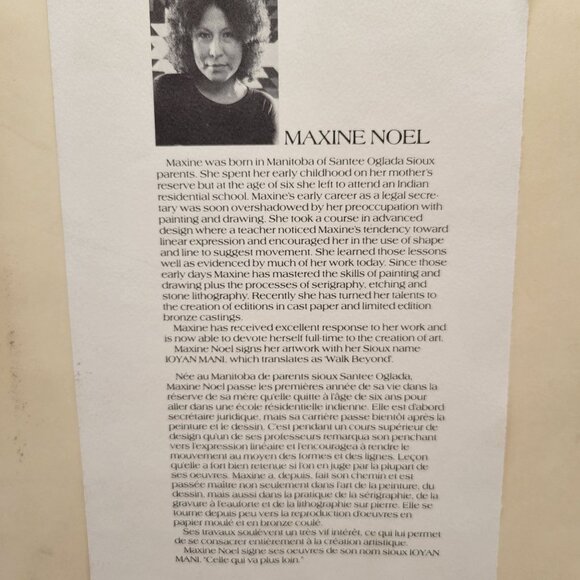 MAXINE NOEL
Maxine was born in Manitoba of Santee Oglada Sioux
parents. She spent her early childhood on her mother's
reserve but at the age of six she left to attend an Indian
residential school. Maxine's early career as a legal secre-
tary was soon overshadowed by her preoccupation with
painting and drawing. She took a course in advanced
design where a teacher noticed Maxine's tendency toward
linear expression and encouraged her in the use of shape
and line to suggest movement. She learned those lessons
well as evidenced by much of her work today. Since those
early days Maxine has mastered the skills of painting and
drawing plus the processes of serigraphy, etching and
stone lithography. Recently she has turned her talents to
the creation of editions in cast paper and limited edition
bronze castings.
Maxine has received excellent response to her work and
is now able to devote herself full-time to the creation of art.
Maxine Noel signs her artwork with her Sioux name
IOYAN MANI, which translates as 'Walk Beyond'.
Née au Manitoba de parents sioux Santee Oglada,
Maxine Noel passe les premières année de sa vie dans la
réserve de sa mère qu'elle quitte à l'âge de six ans pour
aller dans une école résidentielle indienne. Elle est d'abord
secrétaire juridique, mais sa carrière passe bientôt après la
peinture et le dessin. C'est pendant un cours supérieur de
design qu'un de ses professeurs remarqua son penchant
vers l'expression linéaire et l'encouragea à rendre le
mouvement au moyen des formes et des lignes. Leçon
qu'elle a fort bien retenue si l'on en juge par la plupart de
ses oeuvres. Maxine a, depuis, fait son chemin et est
passée maître non seulement dans l'art de la peinture, du
dessin, mais aussi dans la pratique de la sérigraphie, de la
gravure à l'eauforte et de la lithographie sur pierre. Elle se
tourne depuis peu vers la reproduction d'oeuvres en
papier moulé et en bronze coulé.
Ses travaux soulèvent un très vif intérêt, ce qui lui permet
de se consacrer entièrement à la création artistique.
Maxine Noel signe ses oeuvres de son nom sioux IOYAN
MANI, "Celle qui va plus loin."